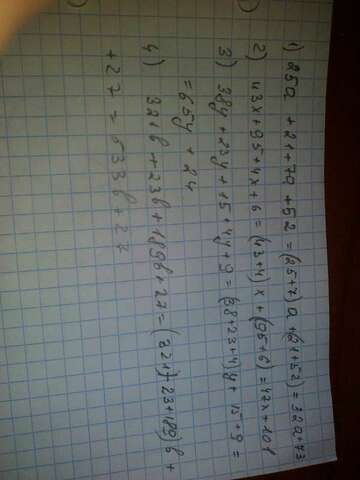 1) 25a + 21 + 7a + 52 = (25+7)a + (21+52) = 32a+73
2) 43x + 95 + 4x + 6 = (43+4)x + (95+6) = 47x + 101
3) 38y + 23y + 15 + 4y + 9 = (38+23+4)y + 15+9 =
= 65y + 24
4) 321b + 23b + 189b + 27 = (321+23+189)b +
+ 27 = 533b + 27